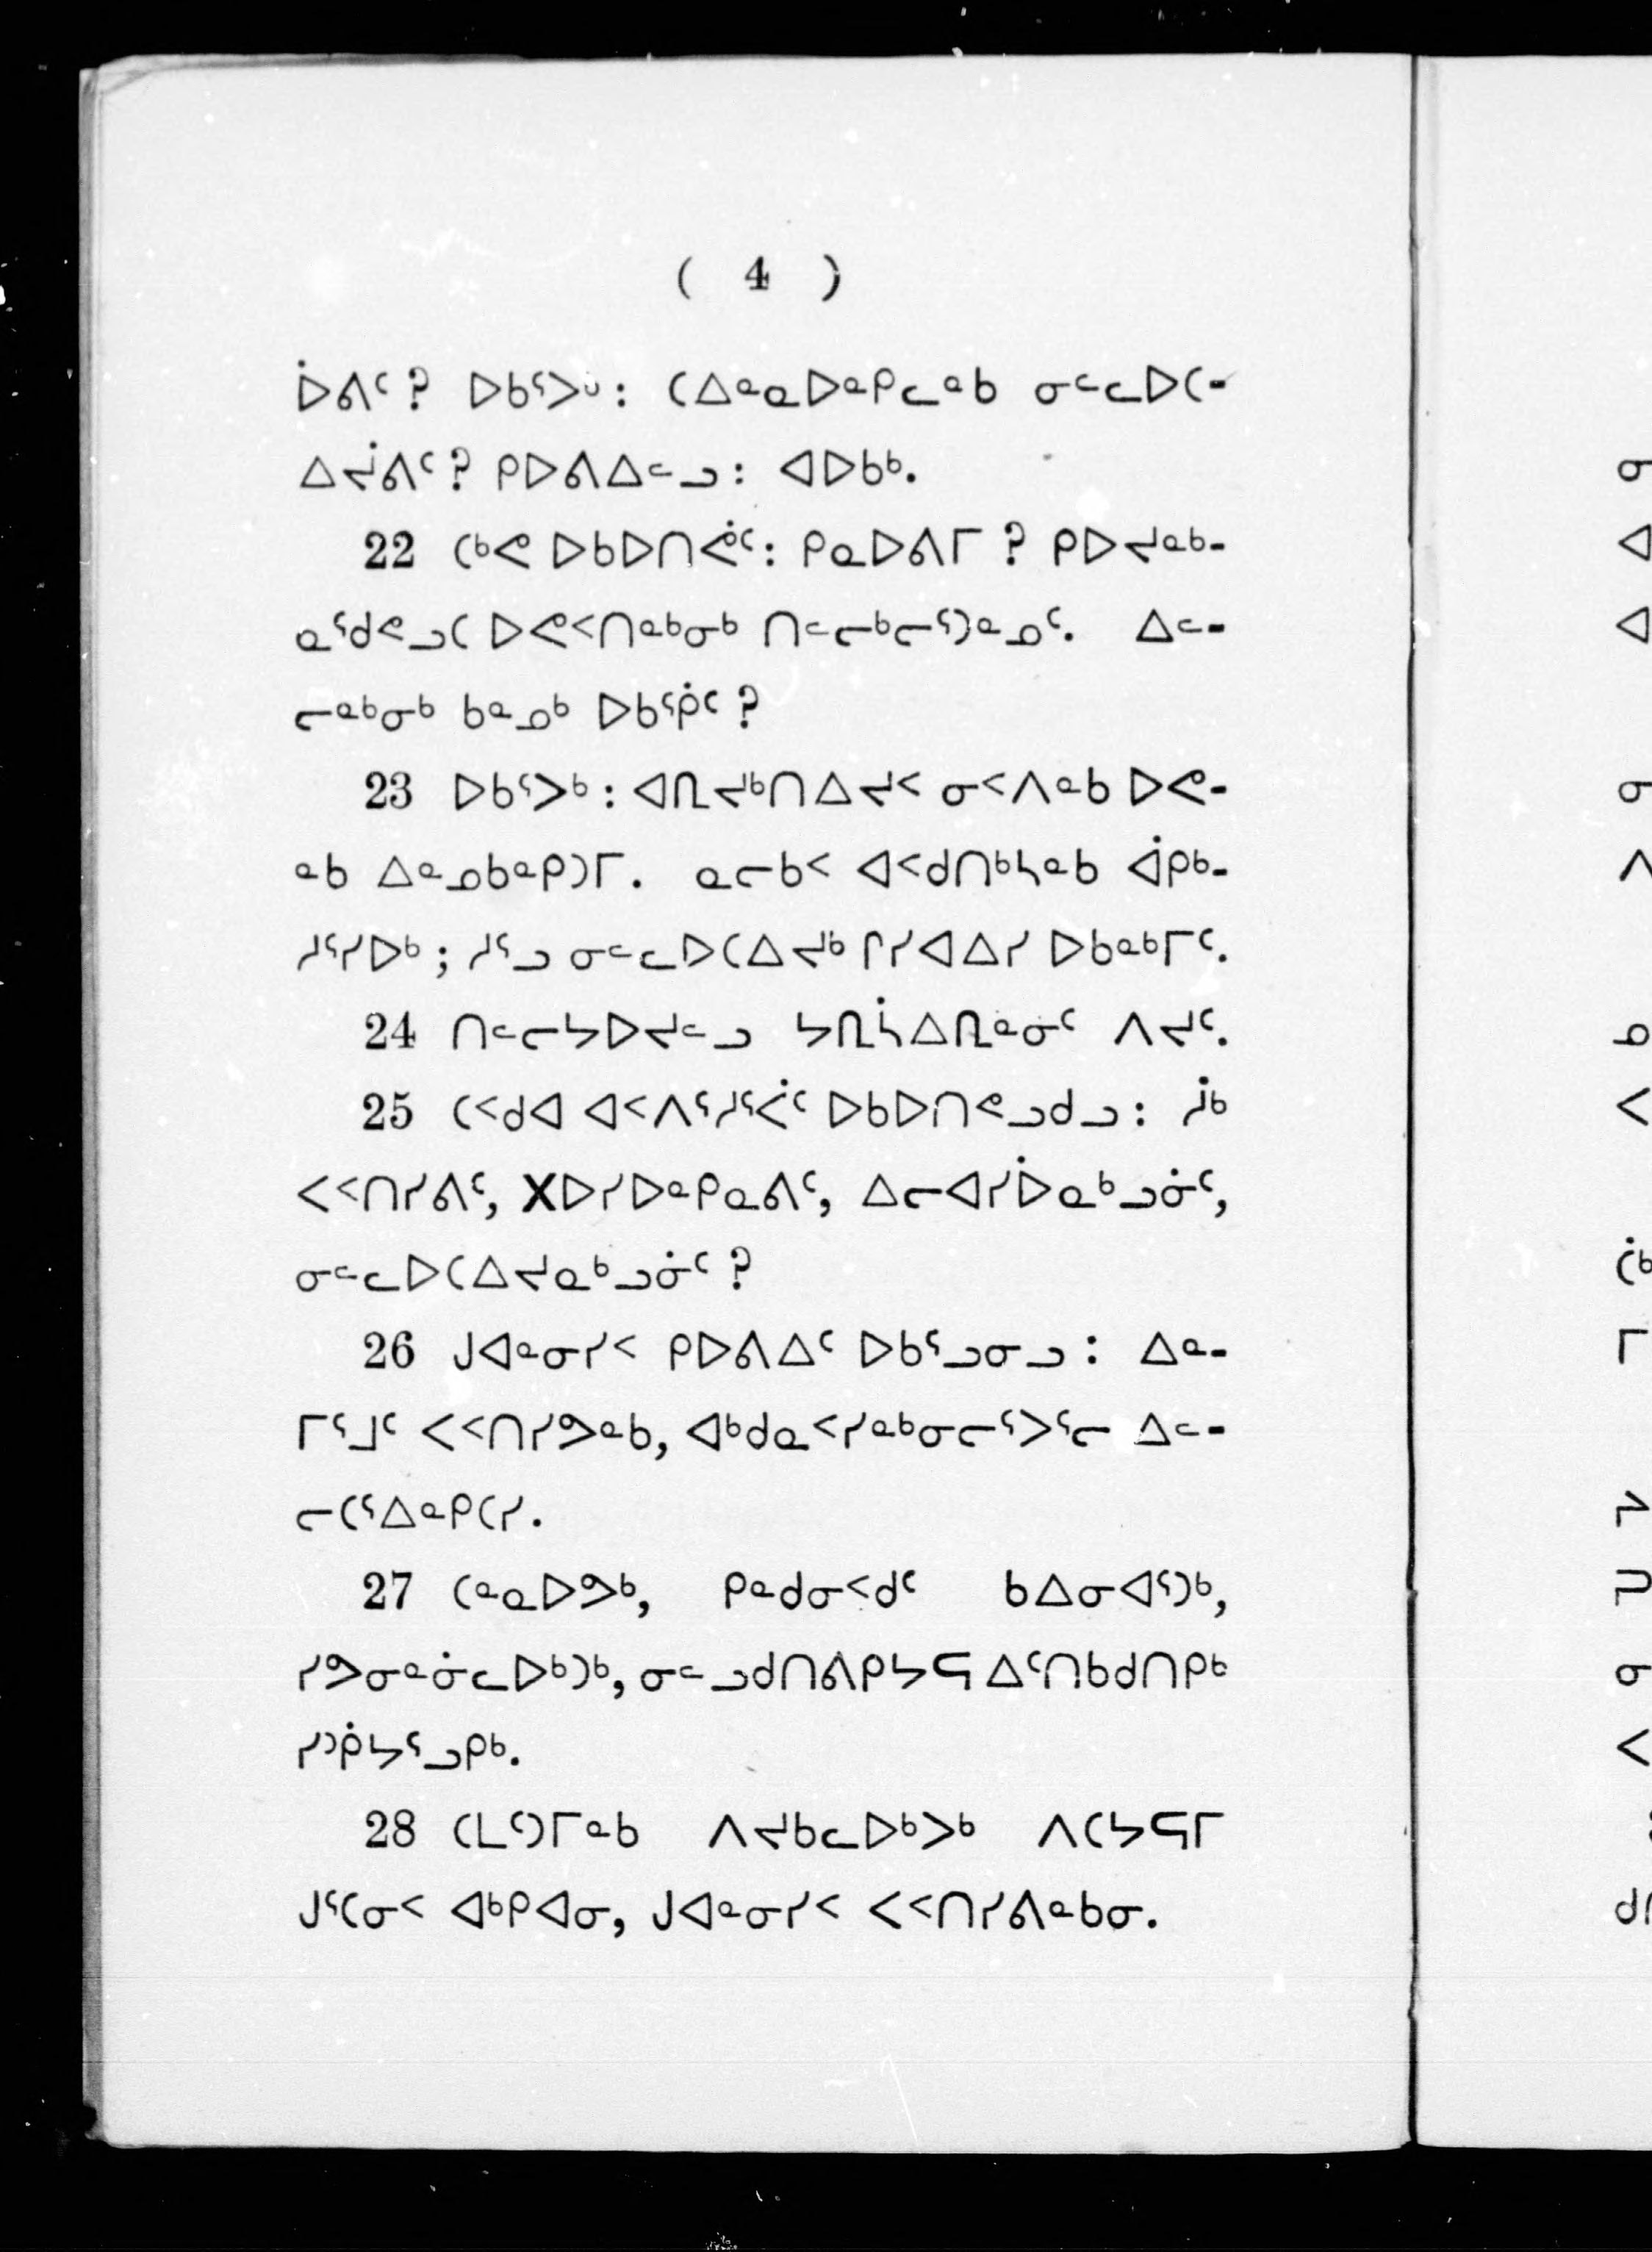 ( 4 )
ᐆᕕᑦ? ᐅᑲᕐᐳᒡ: ᑕᐃᓐᓇᐅᓐᑭᓚᓐᑲ ᓂᓪᓚᐅᑕ-
ᐃᔫᕕᑦ? ᑭᐅᕕᐃᓪᓗ: ᐊᐅᑲᒃ.
22 ᑕᒃᕙ ᐅᑲᐅᑎᕚᑦ: ᑭᓇᐅᕕᒥ? ᑭᐅᔪᓐᒃ-
ᓇᕐᑯᕙᓗᑕ ᐅᕙᑉᑎᓐᒃᓂᒃ ᑎᓪᓕᒃᓕᕐᑐᓐᓄᑦ. ᐃᓪ-
ᓕᓐᒃᓂᒃ ᑲᓐᓄᒃ ᐅᑲᕐᑮᑦ?
23 ᐅᑲᕐᐳᒃ: ᐊᒍᔪᒃᑎᐃᔪᑉ ᓂᑉᐱᓐᑲ ᐅᕙ-
ᓐᑲ ᐃᓐᓄᑲᓐᑭᑐᒥ. ᓇᓕᑲᑉ ᐊᑉᑯᑎᒃᓴᓐᑲ ᐋᑭᒃ-
ᓱᕐᓯᐅᒃ; ᓱᕐᓗ ᓂᓪᓚᐅᑕᐃᔪᒃ ᒋᓯᐊᐃᓯ ᐅᑲᓐᒃᒥᑦ.
24 ᑎᓪᓕᔭᐅᔪᓪᓗ ᔭᒍᓵᐃᒍᓐᓂᑦ ᐱᔪᑦ.
25 ᑕᑉᑯᐊ ᐊᑉᐱᕐᓱᕐᐹᑦ ᐅᑲᐅᑎᕙᓗᑯᓗ: ᓲᒃ
ᐸᑉᑎᓯᕕᑦ, Xᐅᓯᐅᓐᑭᓇᕕᑦ, ᐃᓕᐊᓯᐆᓇᒃᓗᓃᑦ,
ᓂᓪᓚᐅᑕᐃᔪᓇᒃᓗᓃᑦ?
26 ᒍᐊᓐᓂᓯᑉ ᑭᐅᕕᐃᑦ ᐅᑲᕐᓗᓂᓗ: ᐃᓐ-
ᒥᕐᒧᑦ ᐸᑉᑎᓯᕗᓐᑲ, ᐊᒃᑯᓇᑉᓯᓐᒃᓂᓕᕐᐳᕐᓕ ᐃᓪ-
ᓕᑕᕐᐃᓐᑭᑕᓯ.
27 ᑕᓐᓇᐅᕗᒃ, ᑭᓐᑯᓂᑉᑯᑦ ᑲᐃᓂᐊᕐᑐᒃ,
ᓯᕗᓂᓐᓃᓚᐅᒃᑐᒃ, ᓂᓪᓗᑯᑎᕕᑭᔭᕋ ᐃᕐᑎᑲᑯᑎᑭᒃ
ᓯᑐᑮᔭᕐᓗᑭᒃ.
28 ᑕᒪᕐᑐᒥᓐᑲ ᐱᔪᑲᓚᐅᒃᐳᒃ ᐱᑕᔭᕋᒥ
ᒍᕐᑕᓂᑉ ᐊᒃᑭᐊᓂ, ᒍᐊᓐᓂᓯᑉ ᐸᑉᑎᓯᕕᓐᑲᓂ.